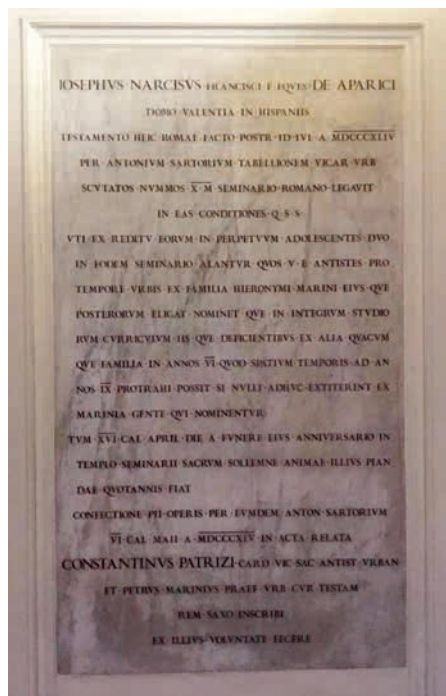 IOSEPHVS · NARCISVS · FRANCISCI · F · EQVES · DE APARICI
DOMO VALENTIA IN HISPANIIS
TESTAMENTO HEIC ROMAE FACTO POSTR · ID · IVL · A · MDCCCXLIV
PER ANTONIVM SARTORIVM TABELLIONEM VICAR · VRB
SCVTATOS NVMMOS · X · M · SEMINARIO ROMANO LEGAVIT
IN EAS CONDITIONES · Q · S · S ·
VTI EX REDITV EORVM IN PERPETVVM ADOLESCENTES DVO
IN EODEM SEMINARIO ALANTVR QVOS V · E · ANTISTES PRO
TEMPORE VRBIS EX FAMILIA HIERONYMI MARINI EIVS QVE
POSTERORVM ELIGAT NOMINET QVE IN INTEGRVM STVDIO
RVM CVRRICVLVM IIS QVE DEFICIENTIBVS EX ALIA QVACVM
QVE FAMILIA IN ANNOS VI QVOD SPATIVM TEMPORIS AD AN
NOS IX PROTRAHI POSSIT SI NVLLI ADHVC EXTITERINT EX
MARINIA GENTE QVI NOMINENTVR
TVM XVI CAL · APRIL · DIE A FVNERE EIVS ANNIVERSARIO IN
TEMPLO SEMINARII SACRVM SOLLEMNE ANIMAE ILLIVS PIAN
DAE QVOTANNIS FIAT
CONFECTIONE PII OPERIS PER EVMDEM ANTON · SARTORIVM
VI CAL · MAII · A · MDCCCXLV IN ACTA RELATA
CONSTANTINVS PATRIZI CARD · VIC · SAC · ANTIST · VRBAN
ET PETRVS MARINIVS PRAEF · VRB · CVR · TESTAM
REM SAXO INSCRIBI
EX ILLIVS VOLVNTATE FECERE